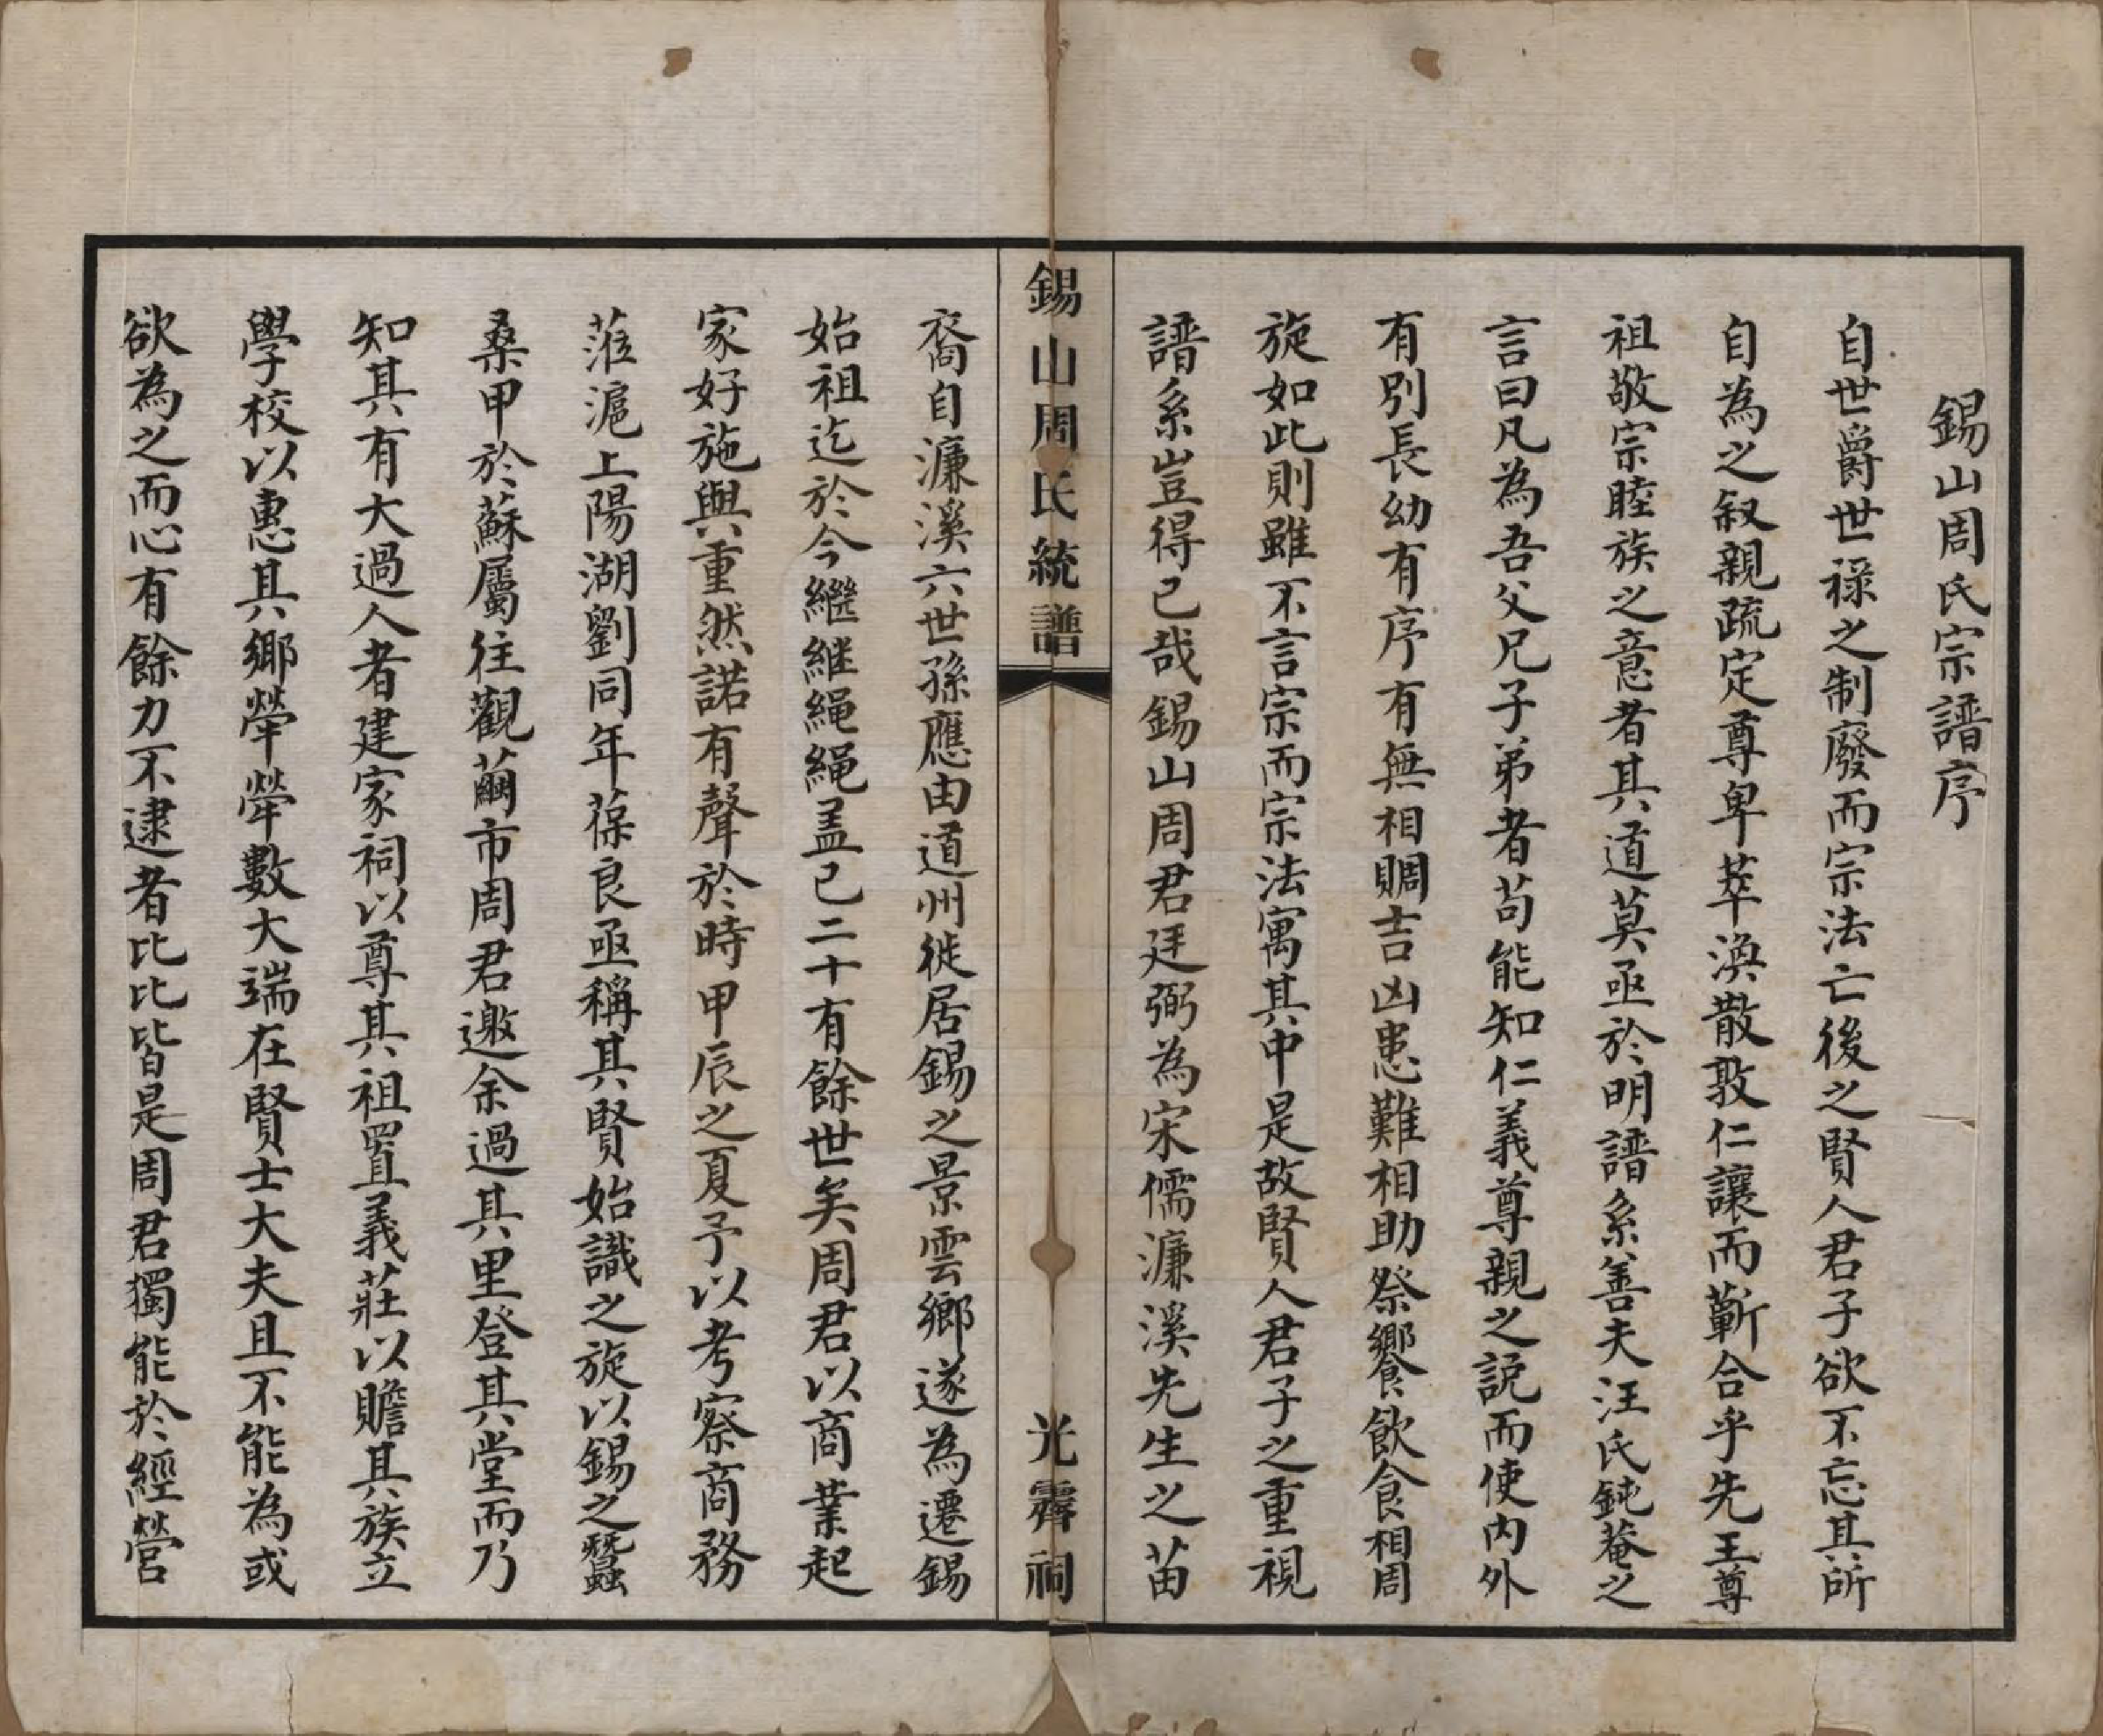 錫山周氏宗譜序
自世爵世祿之制廢而宗法亡後之賢人君子欲不忘其所
自為之叙親疏定尊卑萃渙散敦仁讓而蘄合乎先王尊
祖敬宗睦族之意者其道莫亟於明譜系善夫汪氏鈍菴之
言曰凡為吾父兄子弟者苟能知仁義尊親之說而使內外
有別長幼有序有無相賙吉凶患難相助祭饗飲食相周
旋如此則雖不言宗而宗法寓其中是故賢人君子之重視
譜系豈得已哉錫山周君廷弼為宋儒濂溪先生之苗
錫山周氏統譜
光霽祠
裔自濂溪六世孫應由道州徙居錫之景雲鄉遂為遷錫
始祖迄於今繼繼繩繩盖已二十有餘世矣周君以商業起
家好施與重然諾有聲於時甲辰之夏予以考察商務
蒞滬上陽湖劉同年葆良亟稱其賢始識之旋以錫之蠶
桑甲於蘇屬往觀繭市周君邀余過其里登其堂而乃
知其有大過人者建家祠以尊其祖置義莊以贍其族立
學校以惠其鄉犖犖數大端在賢士大夫且不能為或
欲為之而心有餘力不逮者比比皆是周君獨能於經營